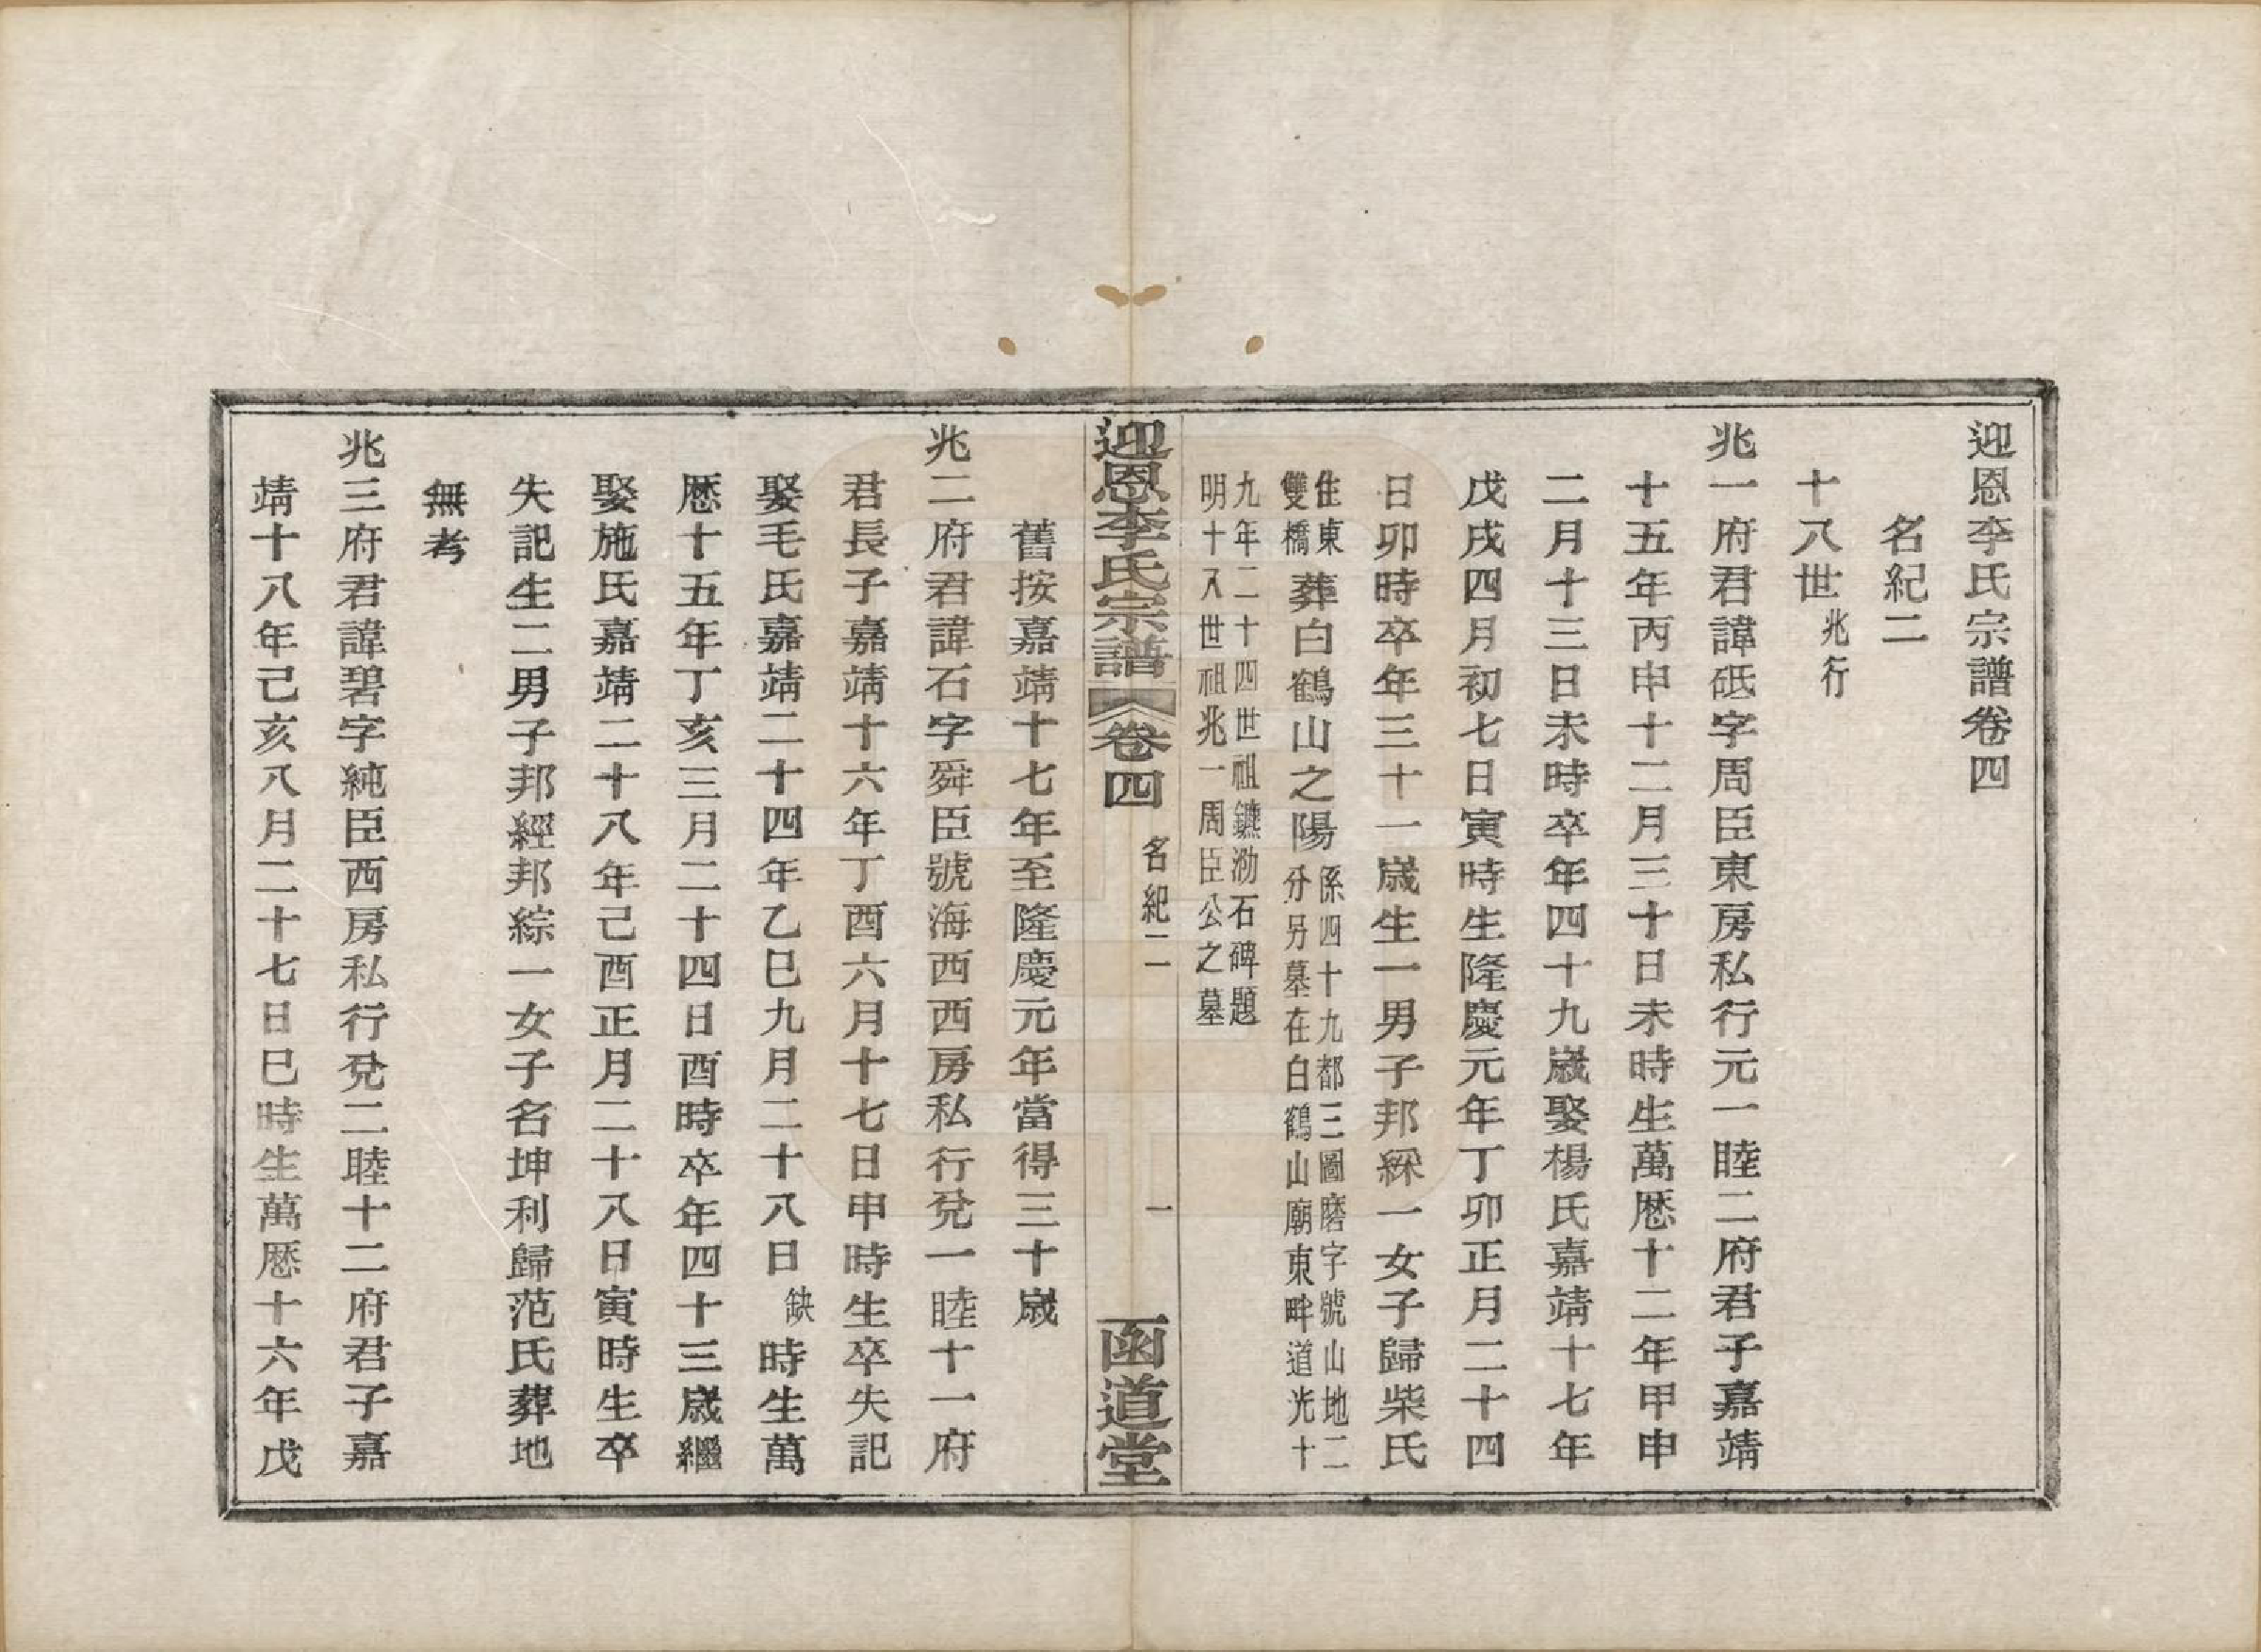 迎恩李氏宗譜卷四
名紀二
十八世兆行
兆一府君諱砥字周臣東房私行元一睦二府君子嘉靖
十五年丙申十二月三十日未時生萬厯十二年甲申
二月十三日未時卒年四十九歲娶楊氏嘉靖十七年
戊戌四月初七日寅時生隆慶元年丁卯正月二十四
日卯時卒年三十一歲生一男子邦綵一女子歸柴氏
住東
雙橋
葬白鶴山之陽
係四十九都三圖磨字號山地二
分另墓在白鶴山廟東畔道光十
九年二十四世祖鑣泐石碑題
明十八世祖兆一周臣公之墓
迎恩李氏宗譜
卷四
名紀二
一
函道堂
舊按嘉靖十七年至隆慶元年當得三十歲
兆二府君諱石字舜臣號海西西房私行兌一睦十一府
君長子嘉靖十六年丁酉六月十七日申時生卒失記
娶毛氏嘉靖二十四年乙巳九月二十八日缺時生萬
厯十五年丁亥三月二十四日酉時卒年四十三歲繼
娶施氏嘉靖二十八年己酉正月二十八日寅時生卒
失記生二男子邦經邦綜一女子名坤利歸范氏葬地
無考
兆三府君諱碧字純臣西房私行兌二睦十二府君子嘉
靖十八年己亥八月二十七日巳時生萬厯十六年戊